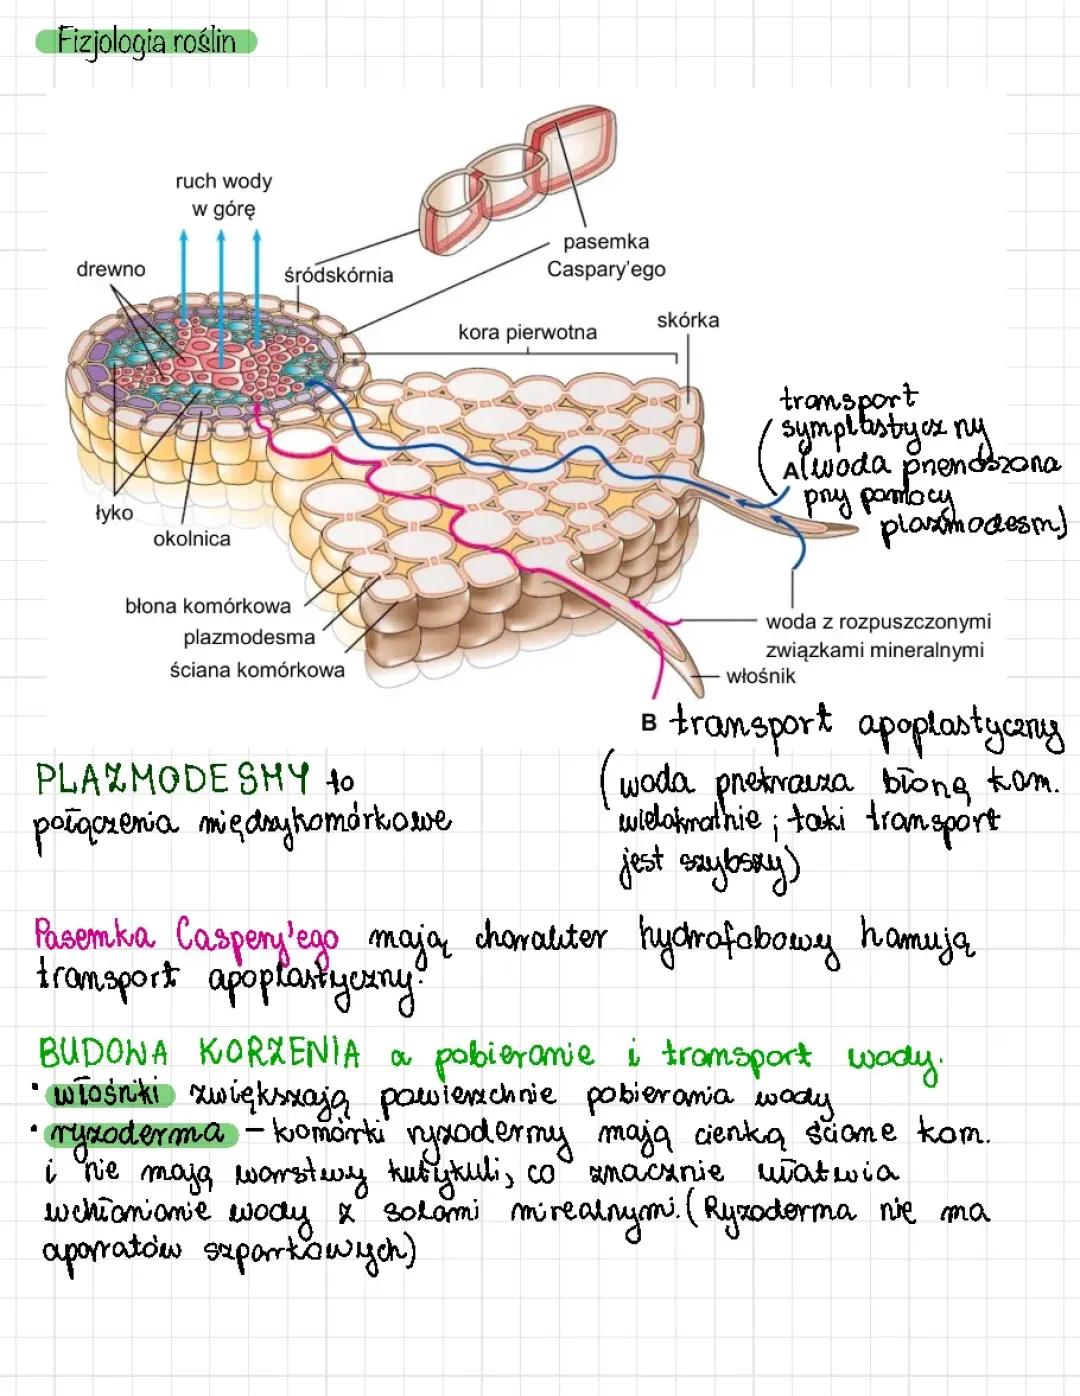 Fizjologia roślin
ruch wody
w górę
drewno
śródskórnia
pasemka
Caspary'ego
kora pierwotna
skórka
transport
symplastyczny
A (woda przenoszona
przy pomocy
plazmodesm)
łyko
okolnica
błona komórkowa
plazmodesma
ściana komórkowa
woda z rozpuszczonymi
związkami mineralnymi
włośnik
B transport apoplastyczny
(woda przekracza błonę kom.
wielokrotnie; taki transport
jest szybszy)
PLAZMODESMY to
połączenia międzykomórkowe
Pasemka Caspery'ego mają charakter hydrofobowy hamują
transport apoplastyczny.
BUDOWA KORZENIA a pobieranie i transport wody.
• włośniki zwiększają powierzchnie pobierania wody
• ryzoderma - komórki ryzodermy mają cienką ściane kom.
i nie mają warstwy kutykuli, co znacznie ułatwia
wchłanianie wody z solami mirealnymi. (Ryzoderma nie ma
aparatów szparkowych)